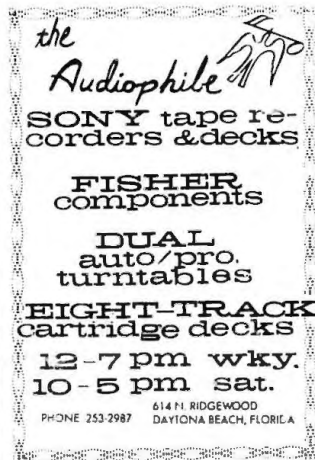 the
Audiophile
SONY tape re-
corders & decks
FISHER
components
DUAL
auto/pro.
turntables
EIGHT-TRACK
cartridge decks
12-7 pm wky.
10-5 pm sat.
614 N. RIDGEWOOD
PHONE 253-2987 DAYTONA BEACH, FLORIDA